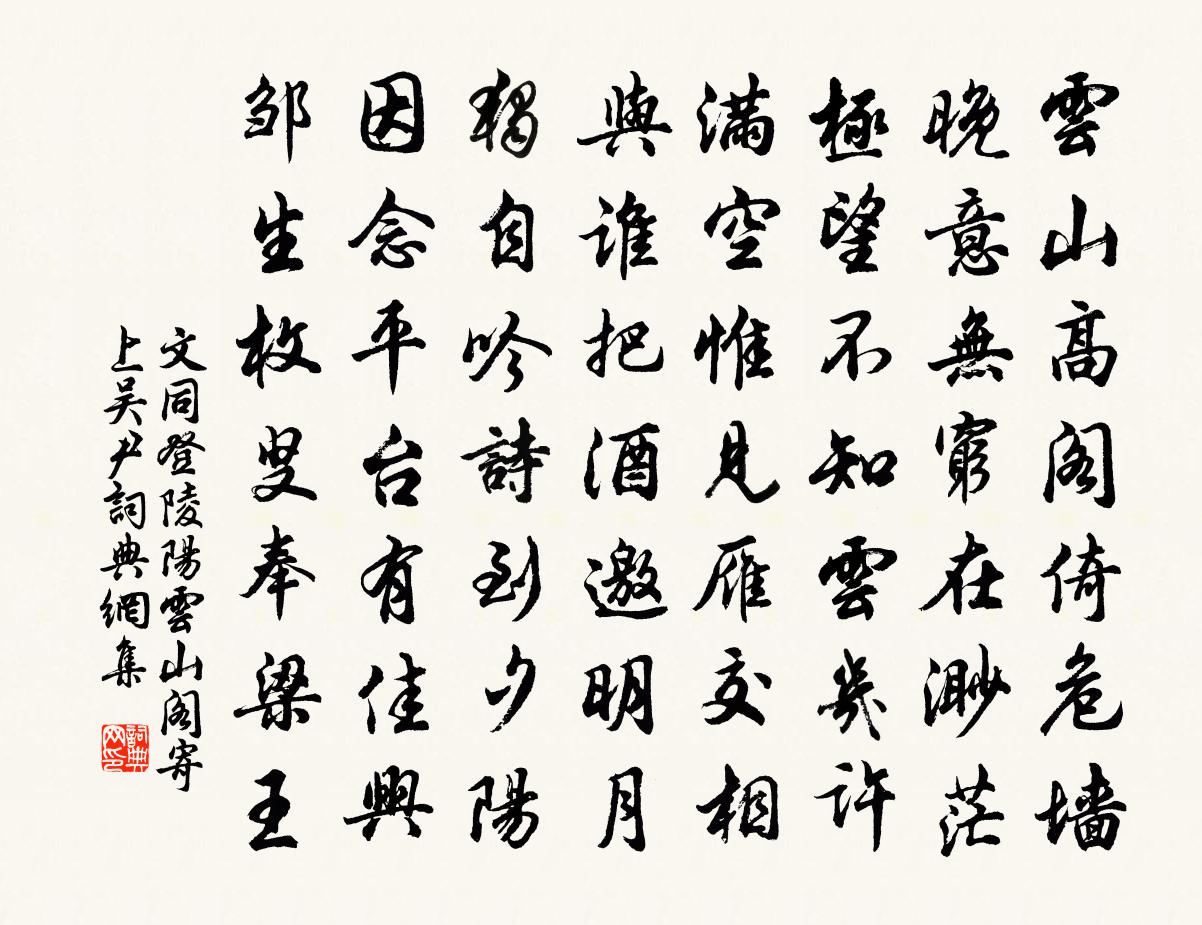 雲山高阁倚危墙
晚意無窮在渺茫
極望不知雲幾許
滿空惟見雁交相
與誰把酒邀明月
獨自吟詩到夕陽
因念平台有佳興
邹生枚叟奉梁王
文同登陵陽雲山阁寄
上吴尹詞典網集
詞典
网印